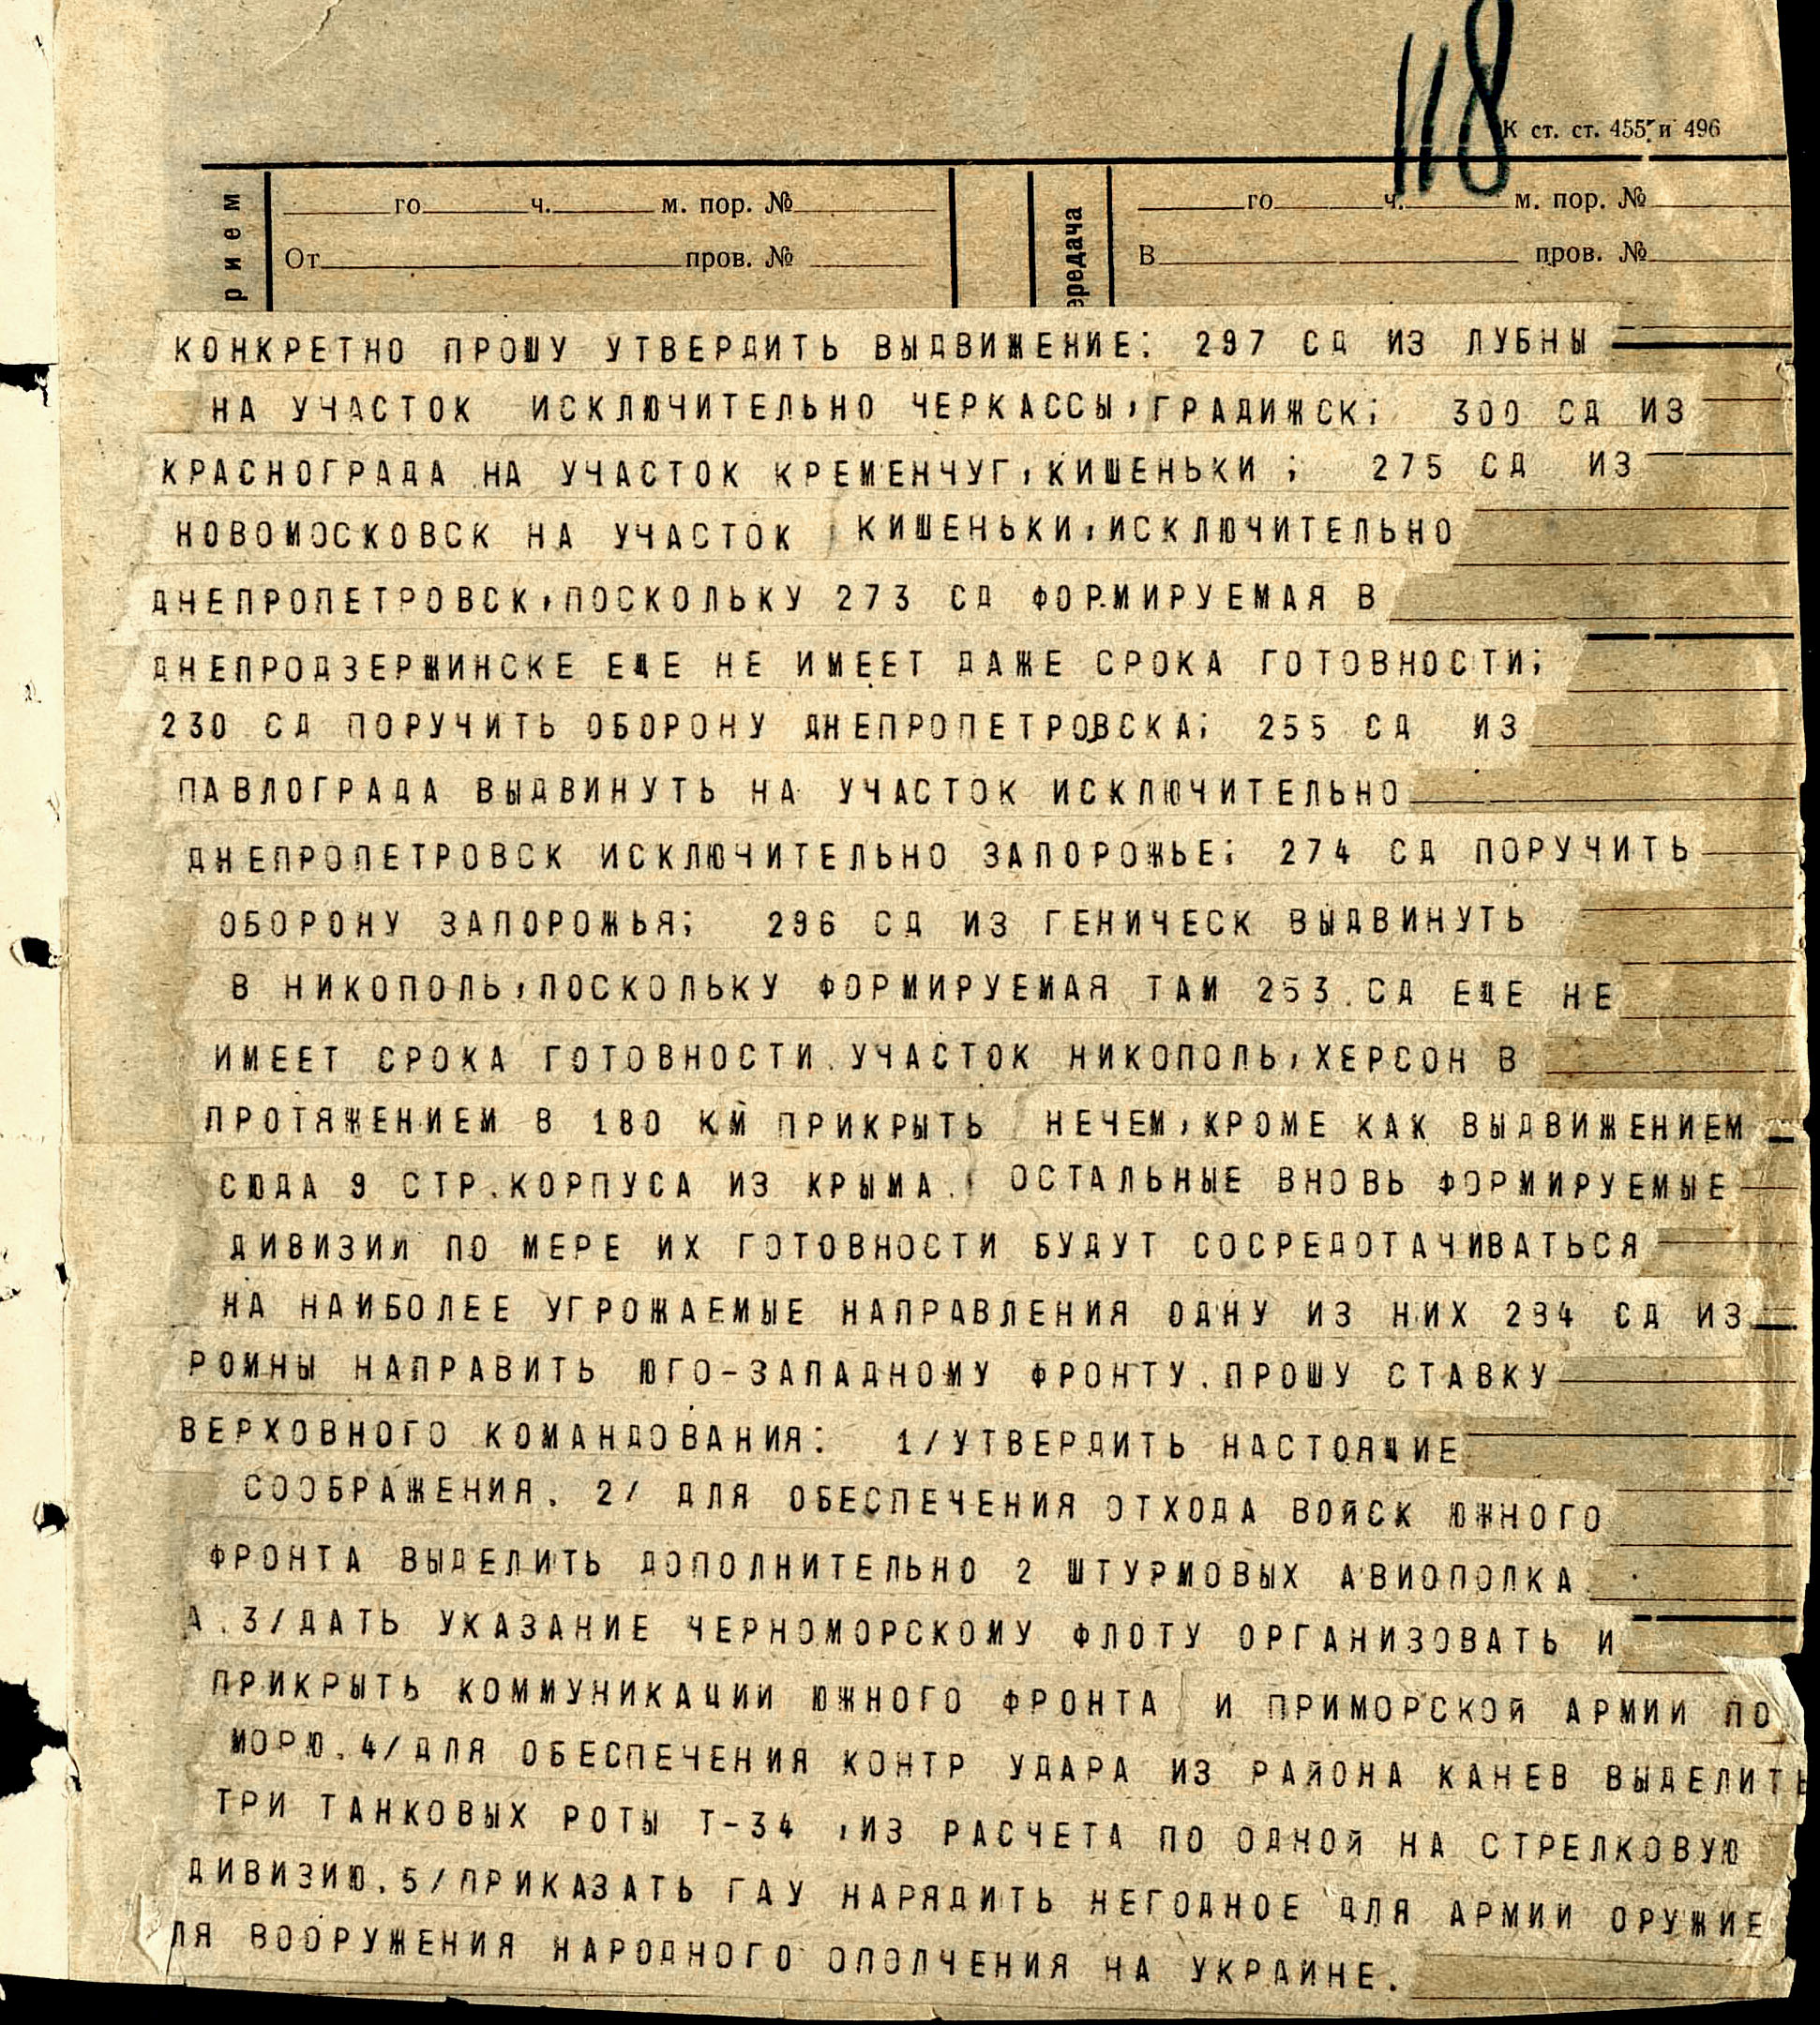 118
К ст. ст. 455 и 496
рием
го ч. м. пор. №
От пров. №
ередача
го ч. м. пор. №
В пров. №
КОНКРЕТНО ПРОШУ УТВЕРДИТЬ ВЫДВИЖЕНИЕ: 297 СД ИЗ ЛУБНЫ
НА УЧАСТОК ИСКЛЮЧИТЕЛЬНО ЧЕРКАССЫ,ГРАДИЖСК; 300 СД ИЗ
КРАСНОГРАДА НА УЧАСТОК КРЕМЕНЧУГ,КИШЕНЬКИ ; 275 СД ИЗ
НОВОМОСКОВСК НА УЧАСТОК КИШЕНЬКИ,ИСКЛЮЧИТЕЛЬНО
ДНЕПРОПЕТРОВСК,ПОСКОЛЬКУ 273 СД ФОРМИРУЕМАЯ В
ДНЕПРОДЗЕРЖИНСКЕ ЕЩЕ НЕ ИМЕЕТ ДАЖЕ СРОКА ГОТОВНОСТИ;
230 СД ПОРУЧИТЬ ОБОРОНУ ДНЕПРОПЕТРОВСКА; 255 СД ИЗ
ПАВЛОГРАДА ВЫДВИНУТЬ НА УЧАСТОК ИСКЛЮЧИТЕЛЬНО
ДНЕПРОПЕТРОВСК ИСКЛЮЧИТЕЛЬНО ЗАПОРОЖЬЕ; 274 СД ПОРУЧИТЬ
ОБОРОНУ ЗАПОРОЖЬЯ; 296 СД ИЗ ГЕНИЧЕСК ВЫДВИНУТЬ
В НИКОПОЛЬ,ПОСКОЛЬКУ ФОРМИРУЕМАЯ ТАМ 253 СД ЕЩЕ НЕ
ИМЕЕТ СРОКА ГОТОВНОСТИ.УЧАСТОК НИКОПОЛЬ,ХЕРСОН В
ПРОТЯЖЕНИЕМ В 180 КМ ПРИКРЫТЬ НЕЧЕМ,КРОМЕ КАК ВЫДВИЖЕНИЕМ
СЮДА 9 СТР.КОРПУСА ИЗ КРЫМА. ОСТАЛЬНЫЕ ВНОВЬ ФОРМИРУЕМЫЕ
ДИВИЗИИ ПО МЕРЕ ИХ ГОТОВНОСТИ БУДУТ СОСРЕДОТАЧИВАТЬСЯ
НА НАИБОЛЕЕ УГРОЖАЕМЫЕ НАПРАВЛЕНИЯ ОДНУ ИЗ НИХ 284 СД ИЗ
РОМНЫ НАПРАВИТЬ ЮГО-ЗАПАДНОМУ ФРОНТУ.ПРОШУ СТАВКУ
ВЕРХОВНОГО КОМАНДОВАНИЯ: 1/УТВЕРДИТЬ НАСТОЯЩИЕ
СООБРАЖЕНИЯ. 2/ ДЛЯ ОБЕСПЕЧЕНИЯ ОТХОДА ВОЙСК ЮЖНОГО
ФРОНТА ВЫДЕЛИТЬ ДОПОЛНИТЕЛЬНО 2 ШТУРМОВЫХ АВИОПОЛКА
А.3/ДАТЬ УКАЗАНИЕ ЧЕРНОМОРСКОМУ ФЛОТУ ОРГАНИЗОВАТЬ И
ПРИКРЫТЬ КОММУНИКАЦИИ ЮЖНОГО ФРОНТА И ПРИМОРСКОЙ АРМИИ ПО
МОРЮ.4/ДЛЯ ОБЕСПЕЧЕНИЯ КОНТР УДАРА ИЗ РАЙОНА КАНЕВ ВЫДЕЛИТЬ
ТРИ ТАНКОВЫХ РОТЫ Т-34 ,ИЗ РАСЧЕТА ПО ОДНОЙ НА СТРЕЛКОВУЮ
ДИВИЗИЮ.5/ПРИКАЗАТЬ ГАУ НАРЯДИТЬ НЕГОДНОЕ ДЛЯ АРМИИ ОРУЖИЕ
ЛЯ ВООРУЖЕНИЯ НАРОДНОГО ОПОЛЧЕНИЯ НА УКРАИНЕ.